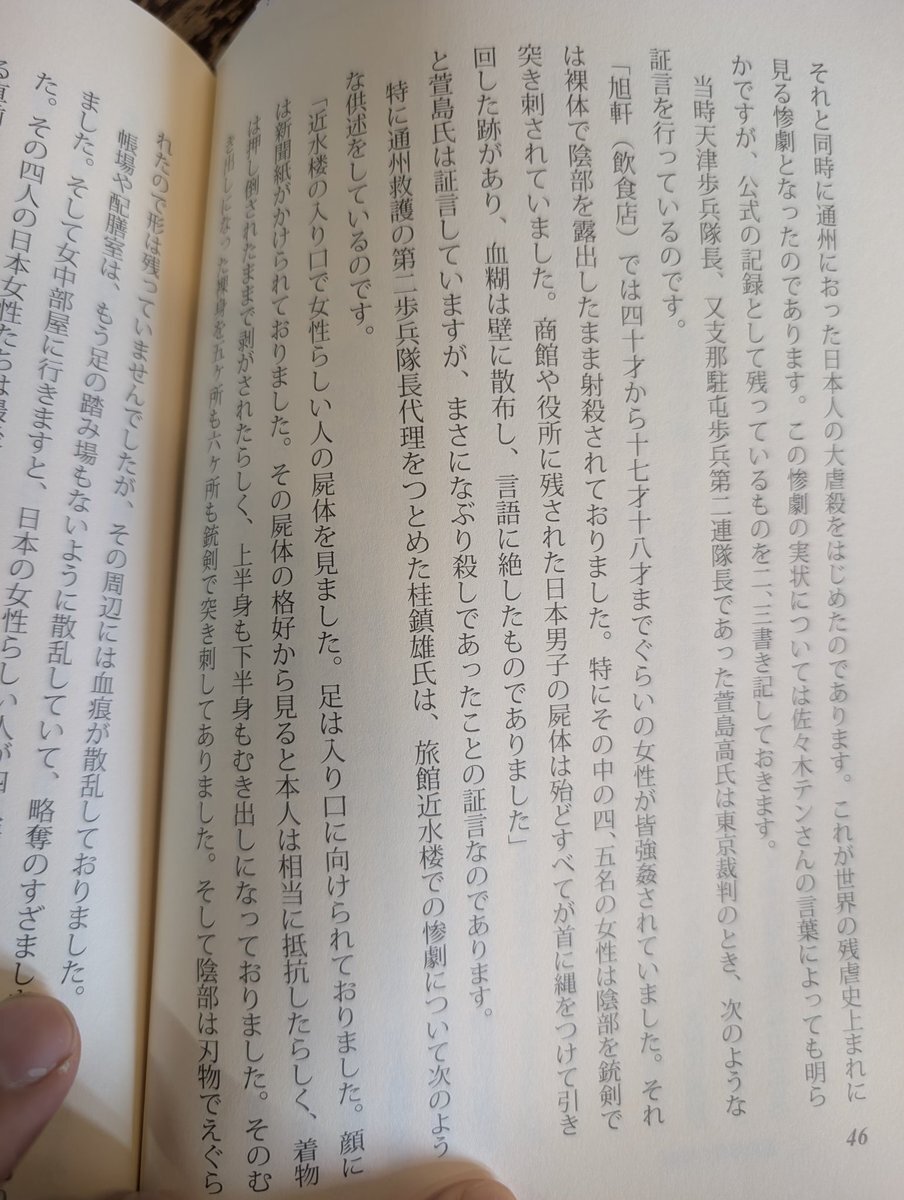 46
それと同時に通州におった日本人の大虐殺をはじめたのであります。これが世界の残虐史上まれに
見る惨劇となったのであります。この惨劇の実状については佐々木テンさんの言葉によっても明ら
かですが、公式の記録として残っているものを二、三書き記しておきます。
当時天津歩兵隊長、又支那駐屯歩兵第二連隊長であった萱島高氏は東京裁判のとき、次のような
証言を行っているのです。
「旭軒（飲食店）では四十才から十七才十八才までぐらいの女性が皆強姦されていました。それ
は裸体で陰部を露出したまま射殺されておりました。特にその中の四、五名の女性は陰部を銃剣で
突き刺されていました。商館や役所に残された日本男子の屍体は殆どすべてが首に縄をつけて引き
回した跡があり、血糊は壁に散布し、言語に絶したものでありました」
と萱島氏は証言していますが、まさになぶり殺しであったことの証言なのであります。
特に通州救護の第二歩兵隊長代理をつとめた桂鎮雄氏は、旅館近水楼での惨劇について次のよう
な供述をしているのです。
「近水楼の入り口で女性らしい人の屍体を見ました。足は入り口に向けられておりました。顔に
は新聞紙がかけられておりました。その屍体の格好から見ると本人は相当に抵抗したらしく、着物
は押し倒されたままで剥がされたらしく、上半身も下半身もむき出しになっておりました。そのむ
き出しになった裸身を五ヶ所も六ヶ所も銃剣で突き刺してありました。そして陰部は刃物でえぐら
れたので形は残っていませんでしたが、その周辺には血痕が散乱しておりました。
帳場や配膳室は、もう足の踏み場もないように散乱していて、略奪のすざまし
ました。そして女中部屋に行きますと、日本の女性らしい人が四
た。その四人の日本女性たちは最